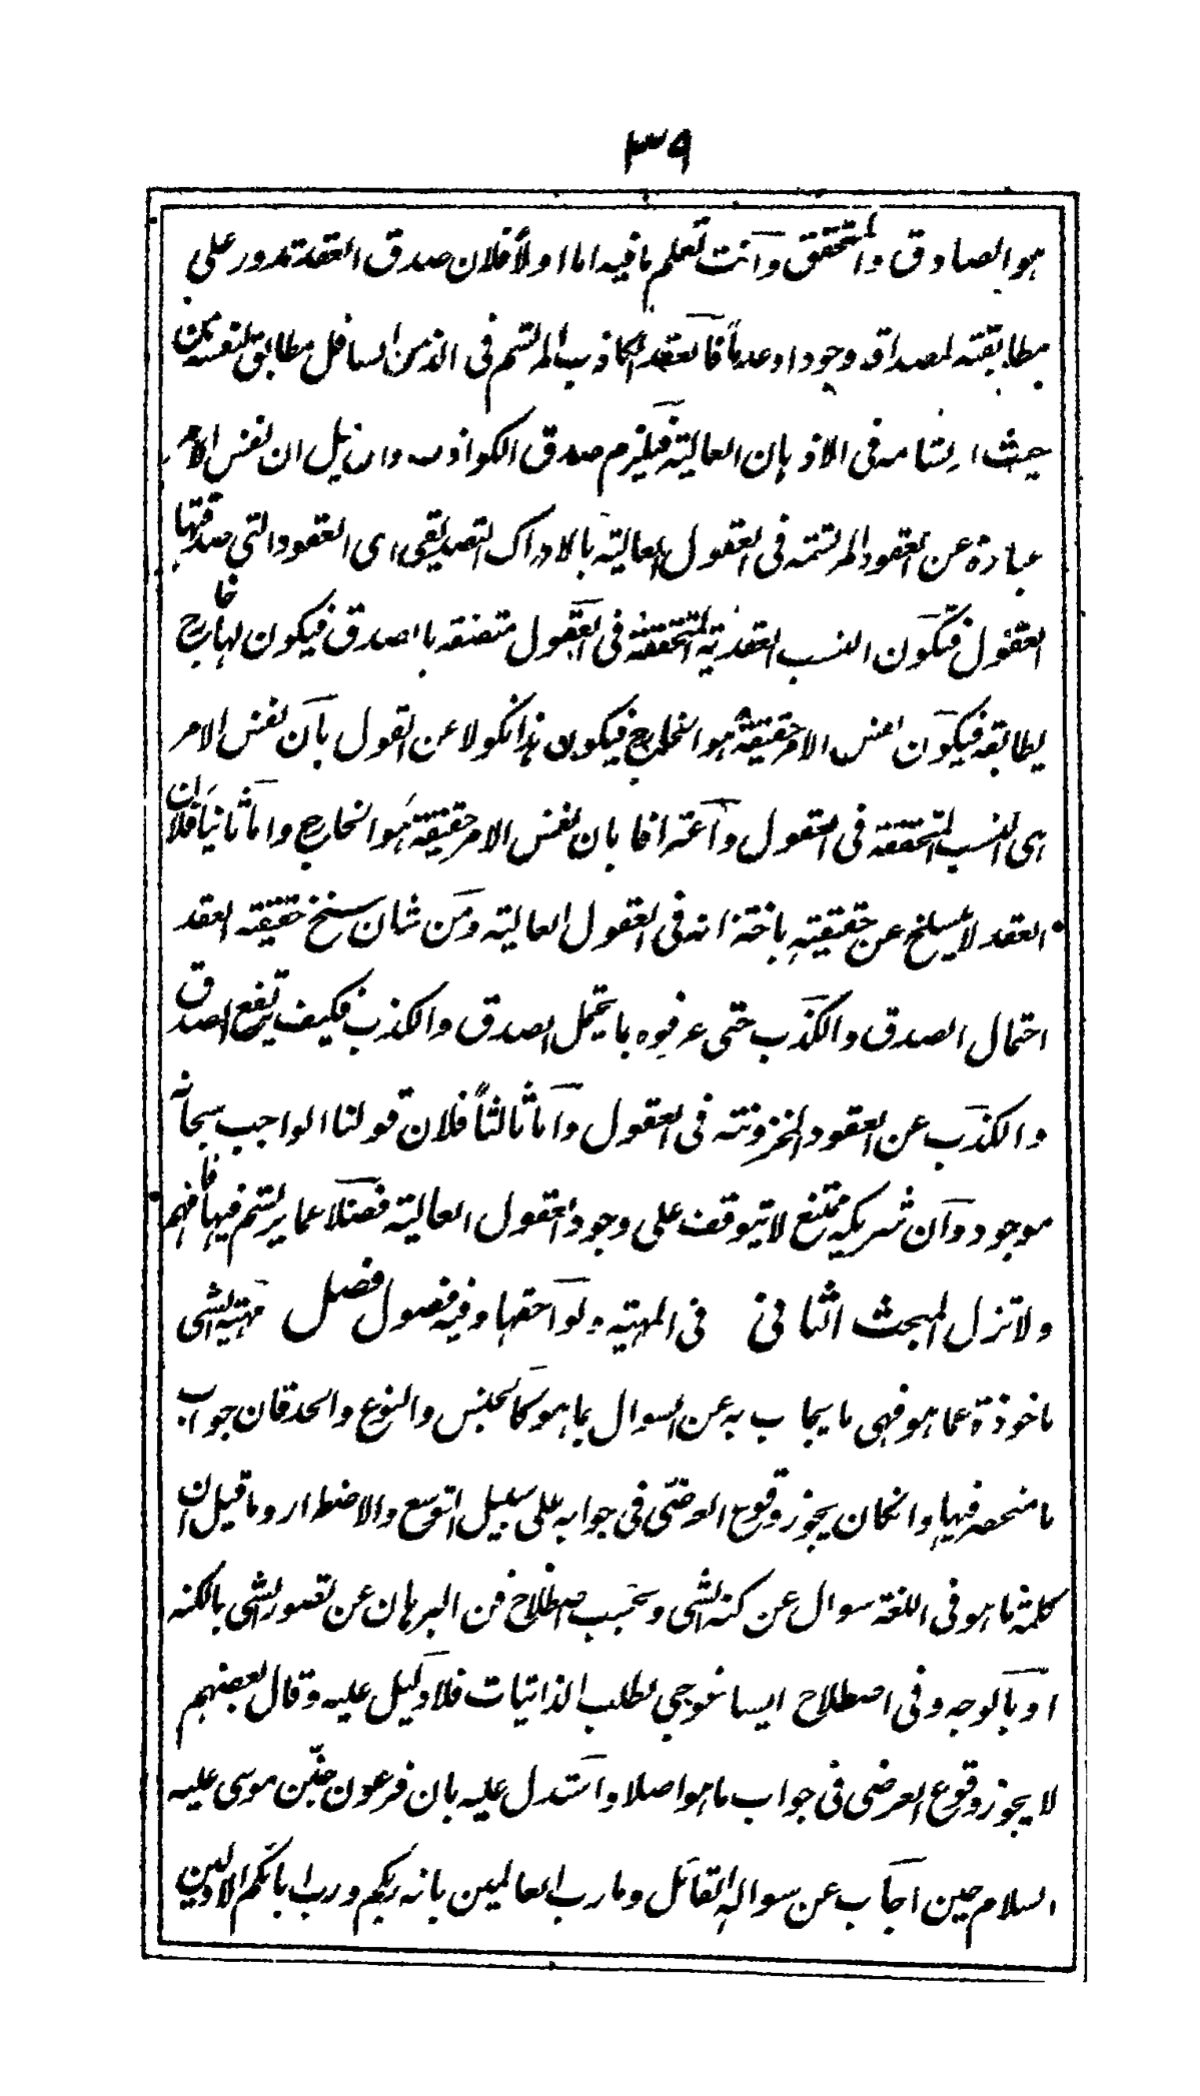 ٣٩
هو الصادق والمتحقق وانت تعلم ما فيه اما اولاً فلان صدق العقد تدور على
مطابقته لمصداقه وجودا وعدماً فالعقد الكاذب المرتسم فى الذهن السافل مطابق لنفسه من
حيث ارتسامه فى الاذهان العالية فيلزم صدق الكواذب وان قيل ان نفس الامر
عبارة عن العقود المرتسمة فى العقول العالية بالادراك التصديقى اى العقود التى صدقتها
العقول فتكون النسب العقدية المتحققة فى العقول متصفة بالصدق فيكون لها خارج
يطابقه فيكون نفس الامر حقيقة هو الخارج فيكون هذا نكولا عن القول بان نفس الامر
هى النسب المتحققة فى العقول واعترافا بان نفس الامر حقيقة هو الخارج واما ثانياً فلان
العقد لا ينسلخ عن حقيقته باختزانه فى العقول العالية ومن شان سنخ حقيقة العقد
احتمال الصدق والكذب حتى عرفوه بما يحتمل الصدق والكذب فكيف يرتفع الصدق
والكذب عن العقود المخزونة فى العقول واما ثالثاً فلان قولنا الواجب سبحانه
موجود وان شريكه ممتنع لا يتوقف على وجود العقول العالية فضلا عما يرتسم فيها فافهم
ولا تزل المبحث الثانى فى المهية ولواحقها وفيه فصول فصل مهية الشى
ماخوذة عما هو فهى ما يجاب به عن السوال بما هو كالجنس والنوع والحد فان جواب
ما منحصر فيها وانكان يجوز وقوع العرضى فى جوابه على سبيل التوسع والاضطرار وما قيل ان
كلمة ما هو فى اللغة سوال عن كنه الشى وبحسب اصطلاح فن البرهان عن تصور الشى بالكنه
او بالوجه وفى اصطلاح ايساغوجى لطلب الذاتيات فلا دليل عليه وقال بعضهم
لا يجوز وقوع العرضى فى جواب ما هو اصلا واستدل عليه بان فرعون جنّن موسى عليه
السلام حين اجاب عن سواله القائل وما رب العالمين بانه ربكم ورب ابائكم الاولين